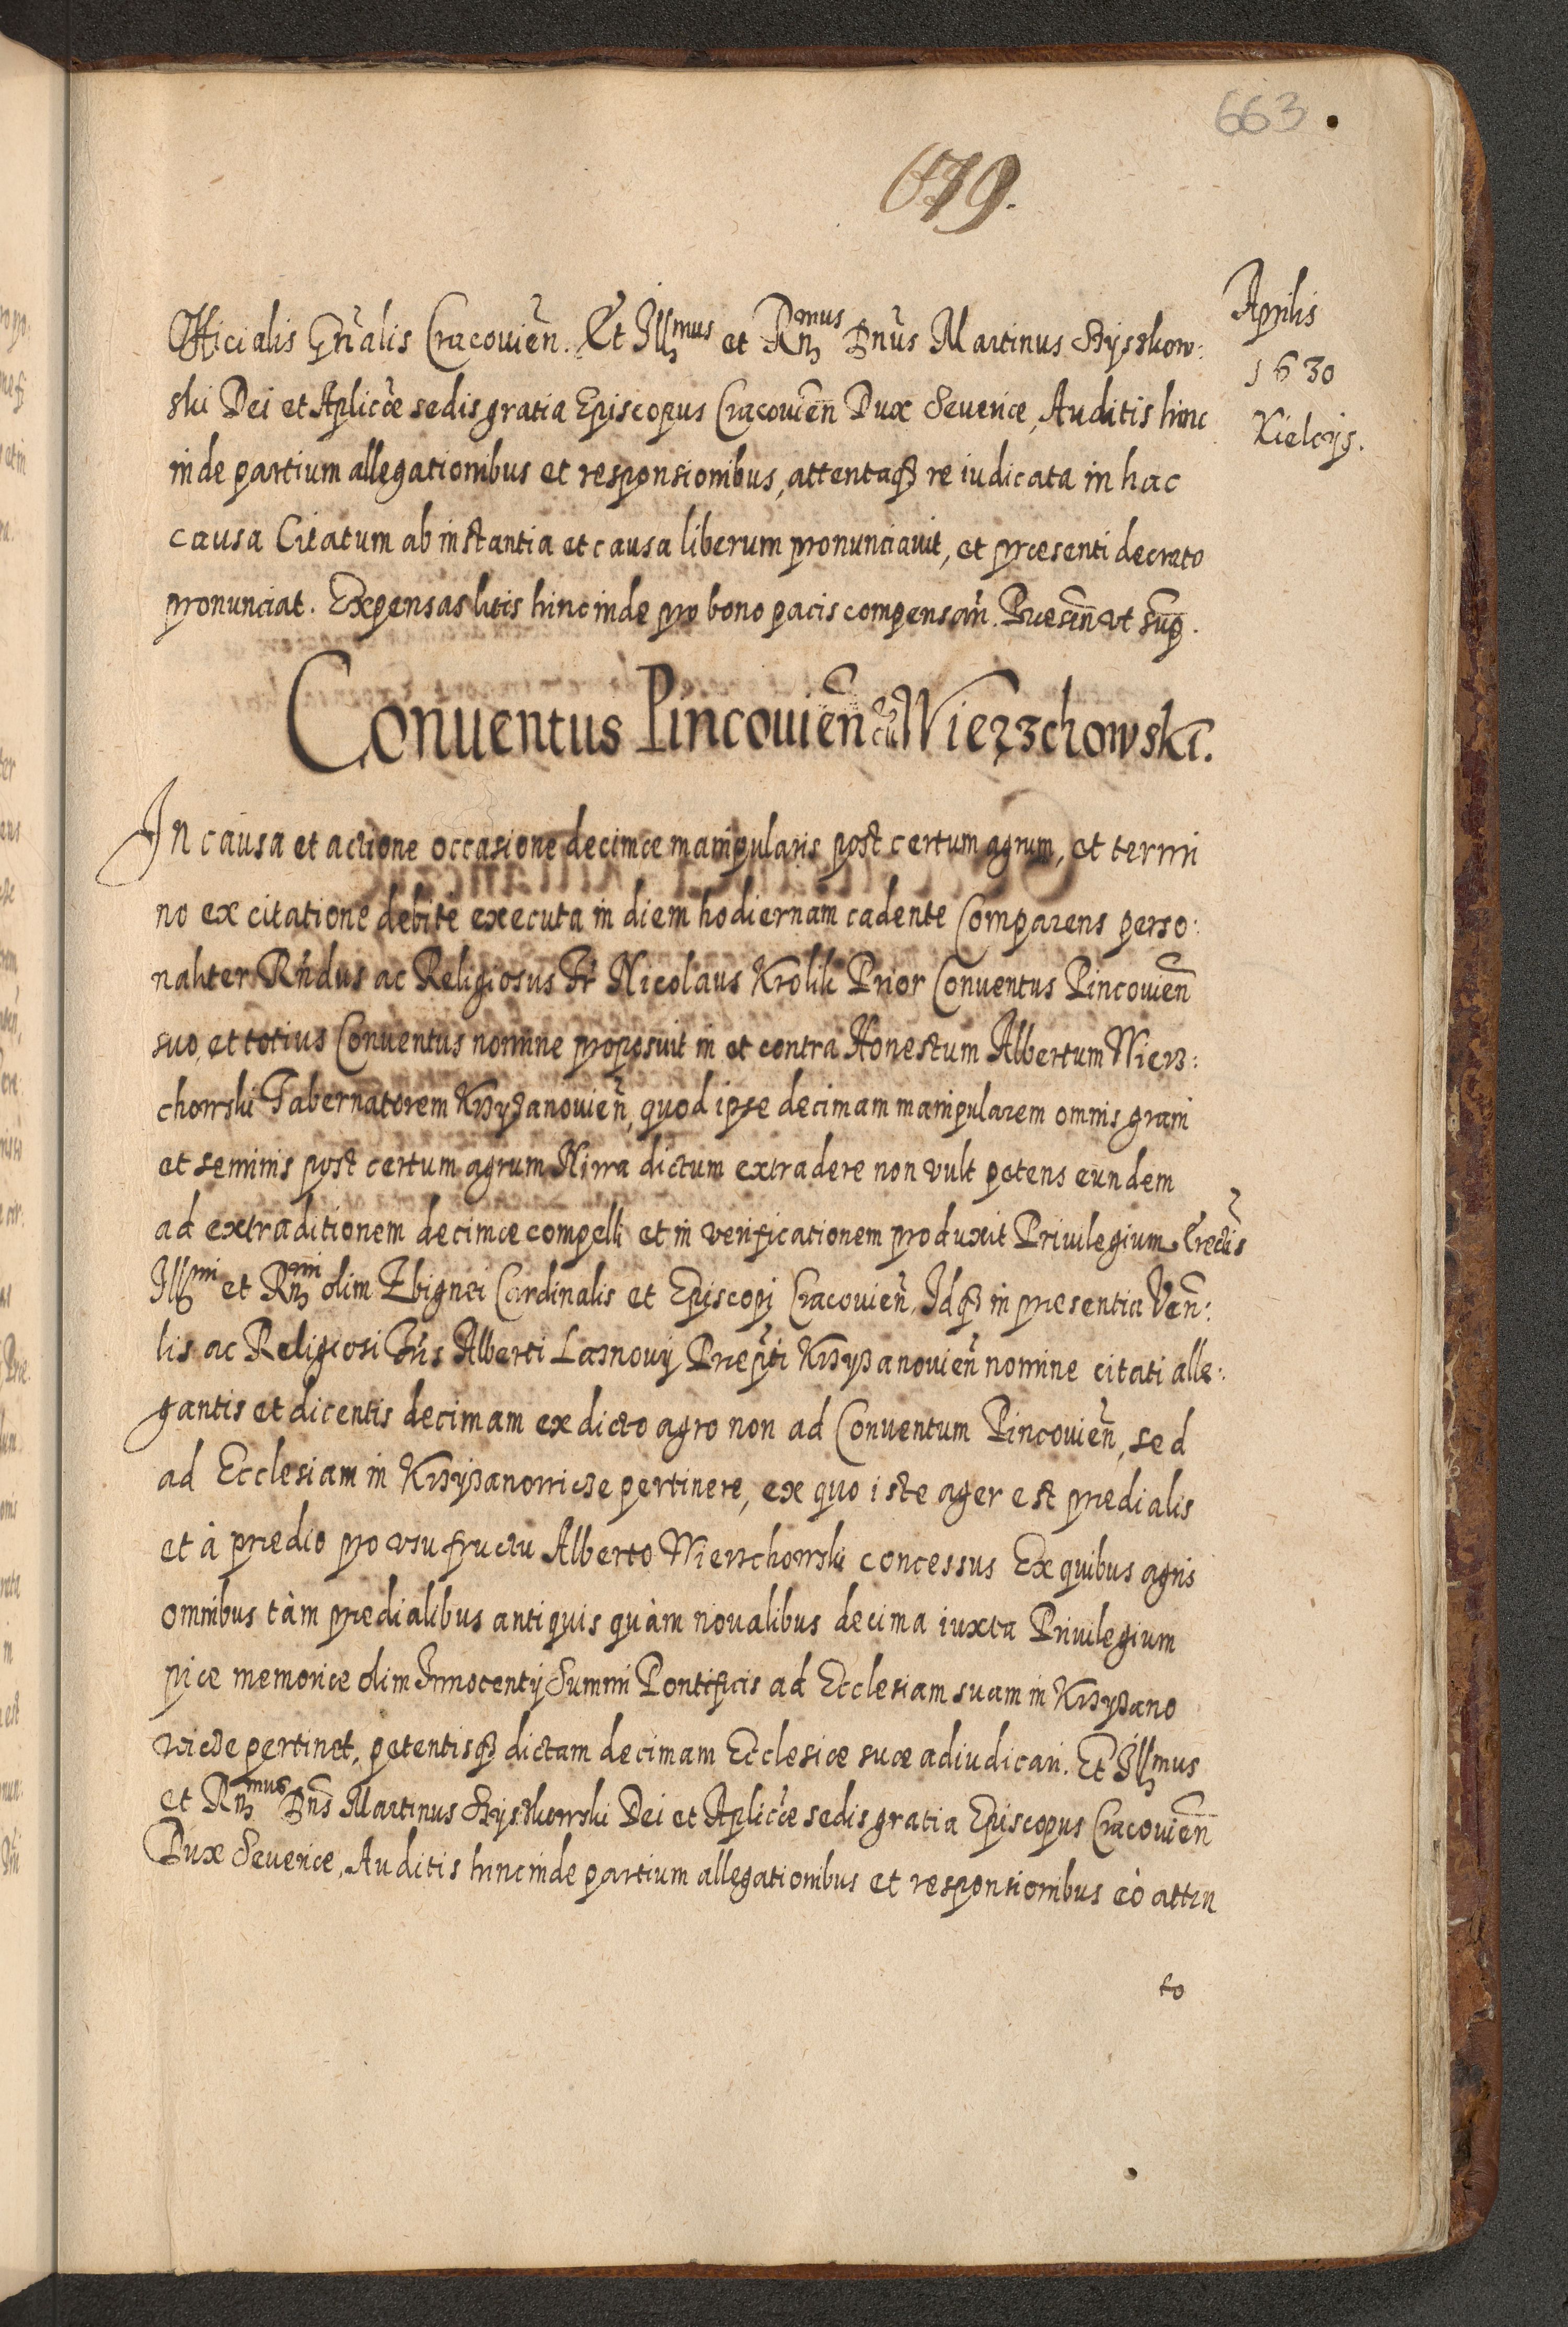 663
679.
Aprilis
1630
Kielcijs.
Officialis Gn̄alis Cracouien̄. Et Illmus et Rn̄mus Dn̄us Martinus Szyszkow:
ski Dei et Aplicæ sedis gratia Episcopus Cracouien̄ Dux Seueriæ, Auditis hinc
inde partium allegationibus et responsionibus, attentaqȝ re iudicata in hac
causa Citatum ab instantia et causa liberum pronunciauit, et præsenti decreto
pronunciat. Expensas litis hinc inde pro bono pacis compensan̄. Præsen̄ ut sup̄.
Conuentus Pincouien̄ cū Wierzchowski.
In causa et actione occasione decimæ manipularis post certum agrum, et termi
no ex citatione debite executa in diem hodiernam cadente Comparens perso:
naliter Rn̄dus ac Religiosus Fr̄ Nicolaus Krolik Prior Conuentus Pincouien̄
suo, et totius Conuentus nomine proposuit in et contra Honestum Albertum Wierz:
chowski Tabernatorem Krzyżanouien̄, quod ipse decimam manipularem omnis grani
et seminis post certum agrum Niwa dictum extradere non vult petens eundem
ad extraditionem decimæ compelli et in verificationem produxit Priuilegium Erectis̄
Illmi et Rn̄mi olim Zbignei Cardinalis et Episcopi Cracouien̄, Idqȝ in presentia Ven̄:
lis ac Religiosi Fr̄is Alberti Lasnouij Præpti Krzyżanouien̄ nomine citati alle:
gantis et dicentis decimam ex dicto agro non ad Conuentum Pincouien̄, sed
ad Ecclesiam in Krzyżanowicze pertinere, ex quo iste ager est prædialis
et à prædio pro vsufructu Alberto Wierzchowski concessus Ex quibus agris
omnibus tàm prædialibus antiquis quàm noualibus decima iuxta Priuilegium
piæ memoriæ olim Innocentij Summi Pontificis ad Ecclesiam suam in Krzyżano
wicze pertinet, petentisqȝ dictam decimam Ecclesiæ suæ adiudicari. Et Illmus
et Rn̄mus Dn̄s Martinus Szyszkowski Dei et Aplicæ sedis gratia Episcopus Cracouien̄
Dux Seueriæ, Auditis hinc inde partium allegationibus et responsionibus eò atten
to